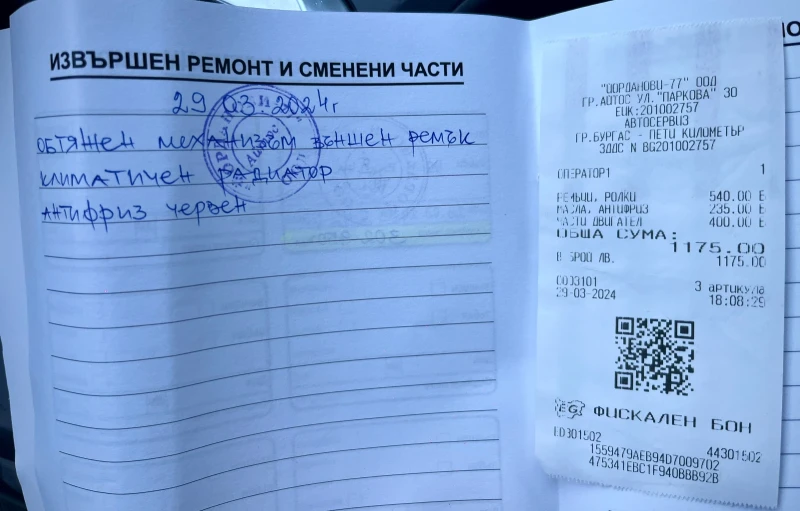 ИЗВЪРШЕН РЕМОНТ И СМЕНЕНИ ЧАСТИ
29.03.2024г
ОБТЯЖЕН МЕХАНИЗЪМ ВЪНШЕН РЕМЪК
КЛИМАТИЧЕН РАДИАТОР
АНТИФРИЗ ЧЕРВЕН
"ЙОРДАНОВИ-77" ООД
ГР.АЙТОС УЛ."ПАРКОВА" 30
ЕИК:201002757
АВТОСЕРВИЗ
ГР.БУРГАС - ПЕТИ КИЛОМЕТЪР
ЗДДС N BG201002757
ОПЕРАТОР1 1
РЕМЪЦИ, РОЛКИ 540.00 Б
МАСЛА, АНТИФРИЗ 235.00 Б
ЧАСТИ ДВИГАТЕЛ 400.00 Б
ОБЩА СУМА: 1175.00
В БРОЙ ЛВ. 1175.00
0003101 3 артикула
29-03-2024 18:08:29
BG ФИСКАЛЕН БОН
ED301502 44301502
1559479AEB94D7009702
475341EBC1F940BBB92B